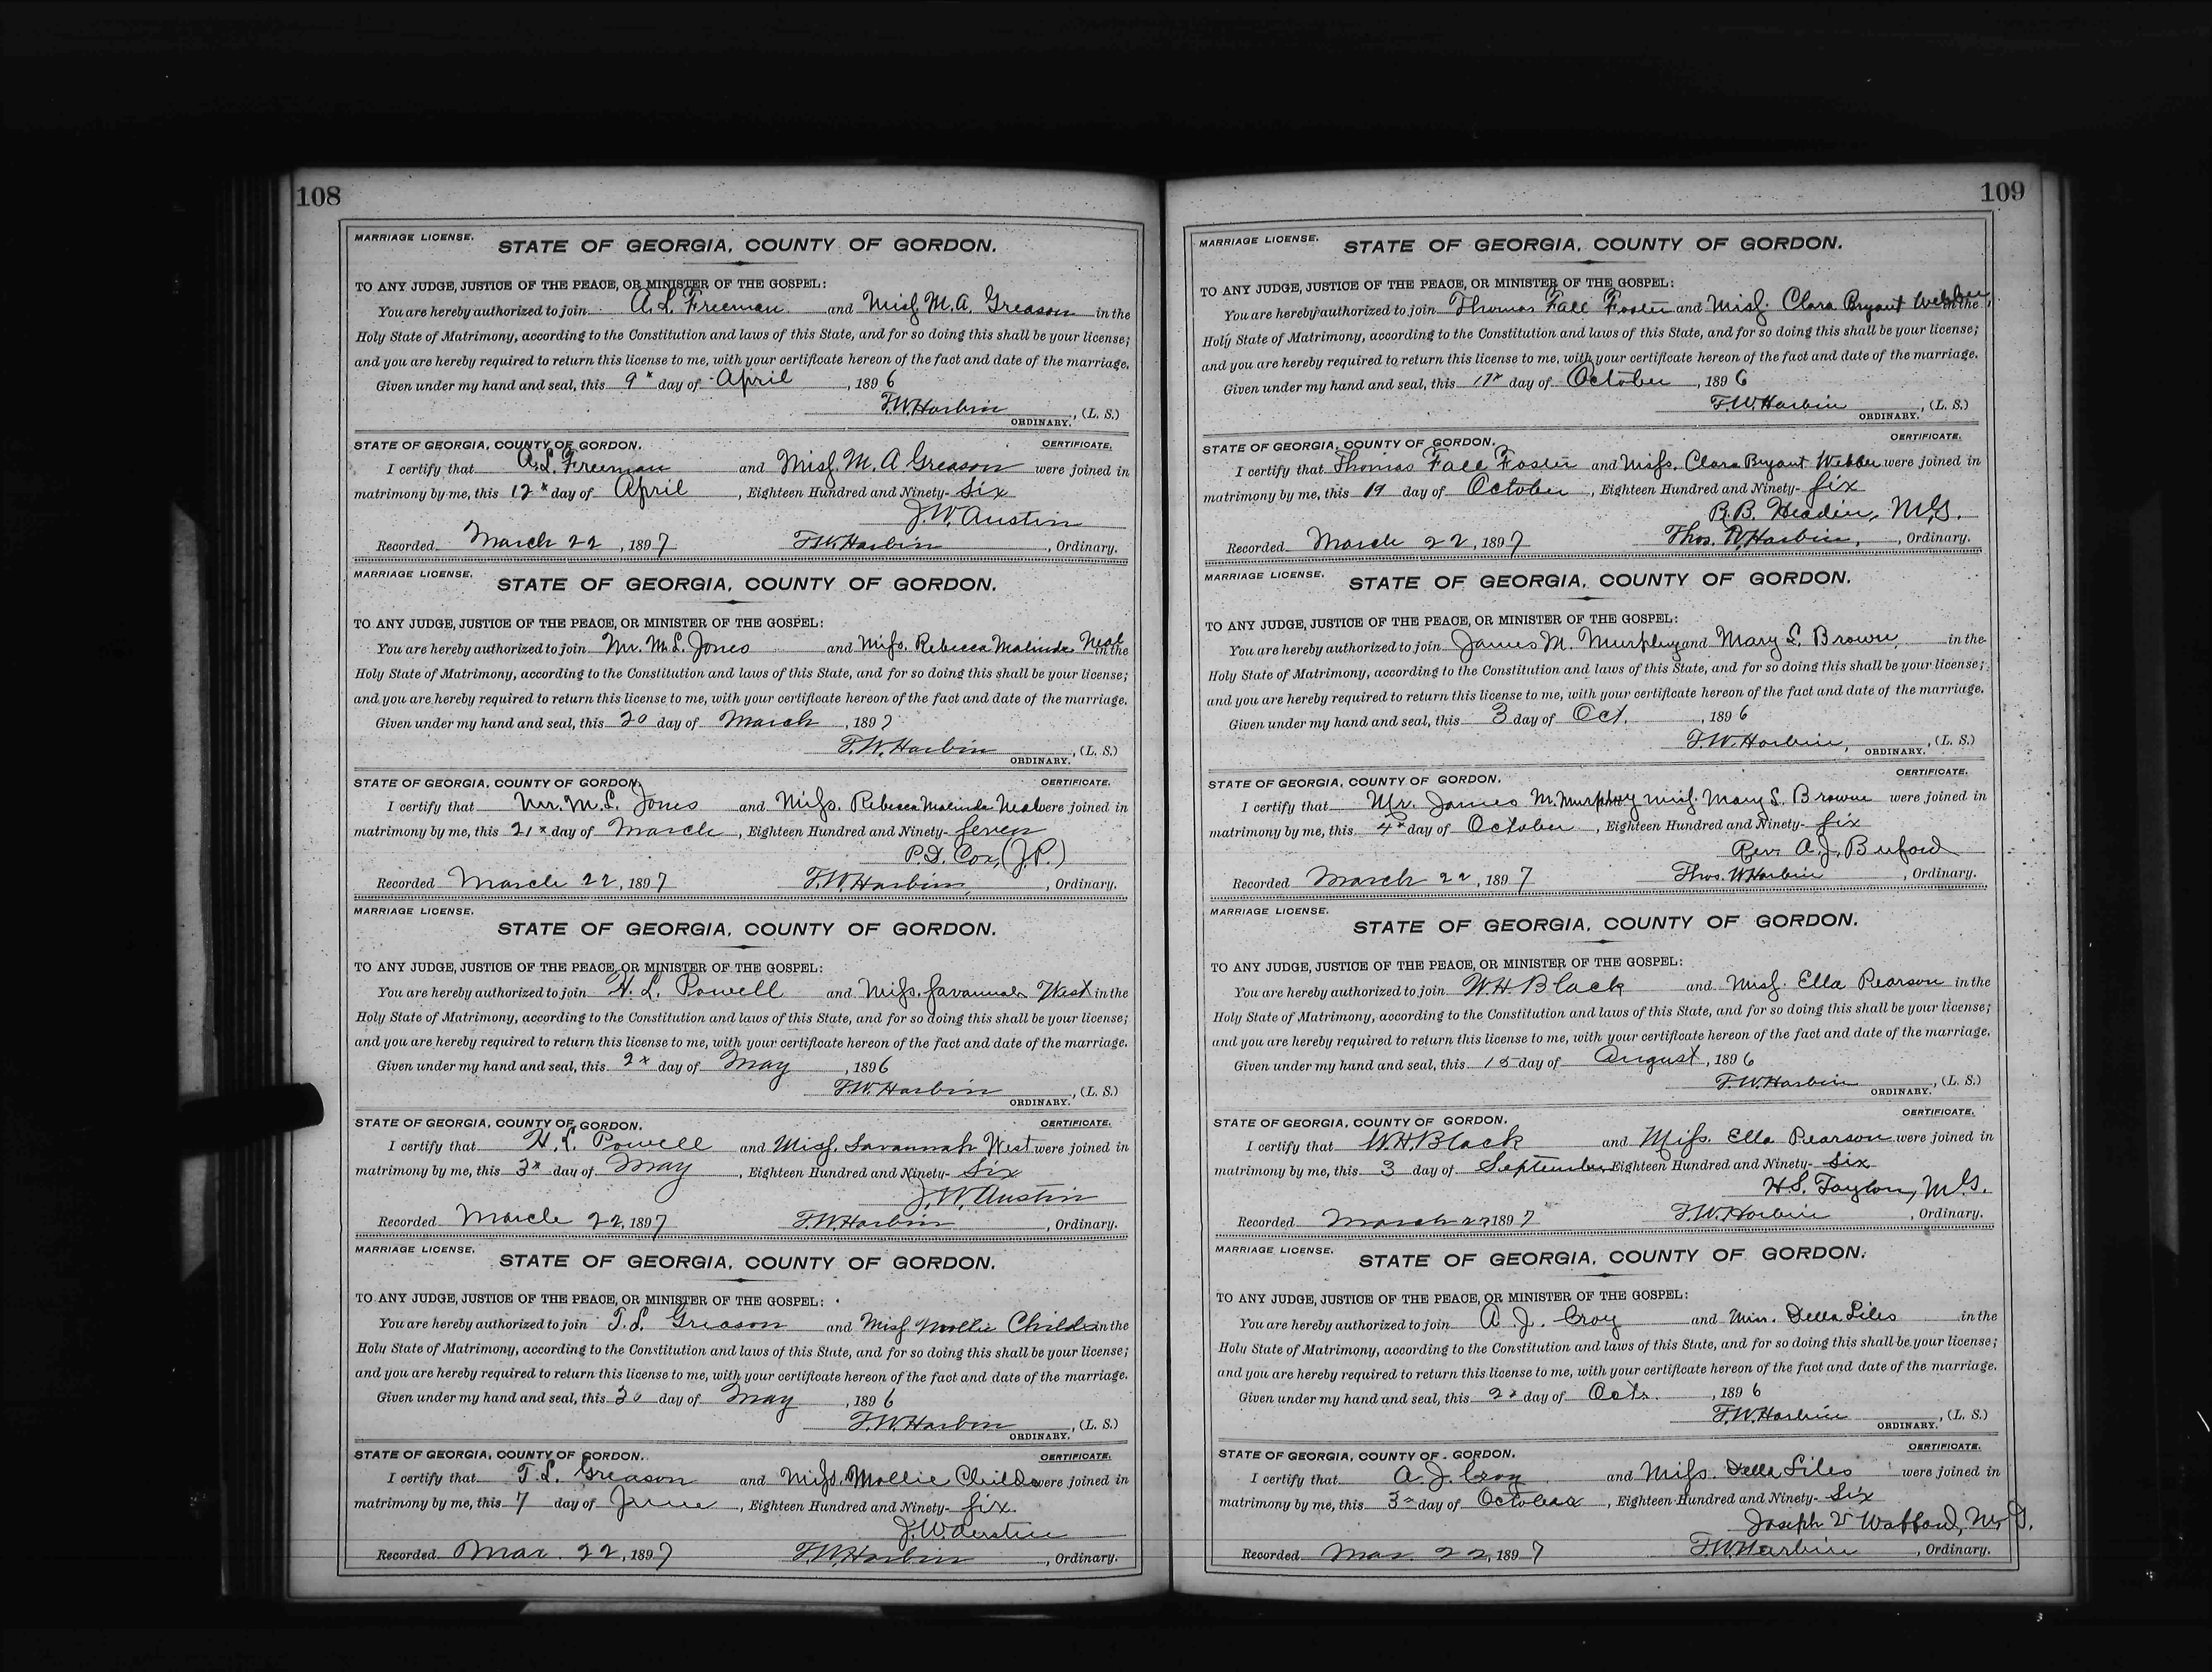 108
MARRIAGE LICENSE.
STATE OF GEORGIA, COUNTY OF GORDON.
TO ANY JUDGE, JUSTICE OF THE PEACE, OR MINISTER OF THE GOSPEL:
You are hereby authorized to join A. L. Freeman and Miss M. A. Greason in the
Holy State of Matrimony, according to the Constitution and laws of this State, and for so doing this shall be your license;
and you are hereby required to return this license to me, with your certificate hereon of the fact and date of the marriage.
Given under my hand and seal, this 9th day of April, 1896
T. W. Harbin, (L. S.)
ORDINARY.
STATE OF GEORGIA, COUNTY OF GORDON. CERTIFICATE.
I certify that A. L. Freeman and Miss. M. A Greason were joined in
matrimony by me, this 12th day of April, Eighteen Hundred and Ninety- Six
J. W. Austin
Recorded March 22, 1897 T. W. Harbin, Ordinary.
MARRIAGE LICENSE.
STATE OF GEORGIA, COUNTY OF GORDON.
TO ANY JUDGE, JUSTICE OF THE PEACE, OR MINISTER OF THE GOSPEL:
You are hereby authorized to join Mr. M. L. Jones and Miss. Rebecca Malinda Neal in the
Holy State of Matrimony, according to the Constitution and laws of this State, and for so doing this shall be your license;
and you are hereby required to return this license to me, with your certificate hereon of the fact and date of the marriage.
Given under my hand and seal, this 20 day of March, 1897
T. W. Harbin, (L. S.)
ORDINARY.
STATE OF GEORGIA, COUNTY OF GORDON. CERTIFICATE.
I certify that Mr. M. L. Jones and Miss. Rebecca Malinda Neal were joined in
matrimony by me, this 21st day of March, Eighteen Hundred and Ninety- Seven
P. D. Cox, (J. P.)
Recorded March 22, 1897 T. W. Harbin, Ordinary.
MARRIAGE LICENSE.
STATE OF GEORGIA, COUNTY OF GORDON.
TO ANY JUDGE, JUSTICE OF THE PEACE, OR MINISTER OF THE GOSPEL:
You are hereby authorized to join H. L. Powell and Miss. Savannah West in the
Holy State of Matrimony, according to the Constitution and laws of this State, and for so doing this shall be your license;
and you are hereby required to return this license to me, with your certificate hereon of the fact and date of the marriage.
Given under my hand and seal, this 2nd day of May, 1896
T. W. Harbin, (L. S.)
ORDINARY.
STATE OF GEORGIA, COUNTY OF GORDON. CERTIFICATE.
I certify that H. L. Powell and Miss. Savannah West were joined in
matrimony by me, this 3rd day of May, Eighteen Hundred and Ninety- Six
J. W. Austin
Recorded March 22, 1897 T. W. Harbin, Ordinary.
MARRIAGE LICENSE.
STATE OF GEORGIA, COUNTY OF GORDON.
TO ANY JUDGE, JUSTICE OF THE PEACE, OR MINISTER OF THE GOSPEL:
You are hereby authorized to join T. L. Greason and Miss Mollie Childs in the
Holy State of Matrimony, according to the Constitution and laws of this State, and for so doing this shall be your license;
and you are hereby required to return this license to me, with your certificate hereon of the fact and date of the marriage.
Given under my hand and seal, this 30 day of May, 1896
T. W. Harbin, (L. S.)
ORDINARY.
STATE OF GEORGIA, COUNTY OF GORDON. CERTIFICATE.
I certify that T. L. Greason and Miss. Mollie Childs were joined in
matrimony by me, this 7 day of June, Eighteen Hundred and Ninety- Six.
J. W. Austin
Recorded Mar. 22, 1897 T. W. Harbin, Ordinary.
109
MARRIAGE LICENSE.
STATE OF GEORGIA, COUNTY OF GORDON.
TO ANY JUDGE, JUSTICE OF THE PEACE, OR MINISTER OF THE GOSPEL:
You are hereby authorized to join Thomas Fall Foster and Miss. Clara Bryant Webber, in the
Holy State of Matrimony, according to the Constitution and laws of this State, and for so doing this shall be your license;
and you are hereby required to return this license to me, with your certificate hereon of the fact and date of the marriage.
Given under my hand and seal, this 17th day of October, 1896
T. W. Harbin, (L. S.)
ORDINARY.
STATE OF GEORGIA, COUNTY OF GORDON. CERTIFICATE.
I certify that Thomas Fall Foster and Miss. Clara Bryant Webber were joined in
matrimony by me, this 19 day of October, Eighteen Hundred and Ninety- Six
B. B. Headin, M. G.
Recorded March 22, 1897 Thos. W. Harbin, Ordinary.
MARRIAGE LICENSE.
STATE OF GEORGIA, COUNTY OF GORDON.
TO ANY JUDGE, JUSTICE OF THE PEACE, OR MINISTER OF THE GOSPEL:
You are hereby authorized to join James M. Murphy and Mary L. Brown, in the
Holy State of Matrimony, according to the Constitution and laws of this State, and for so doing this shall be your license;
and you are hereby required to return this license to me, with your certificate hereon of the fact and date of the marriage.
Given under my hand and seal, this 3 day of Oct., 1896
T. W. Harbin, (L. S.)
ORDINARY.
STATE OF GEORGIA, COUNTY OF GORDON. CERTIFICATE.
I certify that Mr. James M. Murphy Miss. Mary L. Brown were joined in
matrimony by me, this 4th day of October, Eighteen Hundred and Ninety- Six
Rev. A. J. Buford
Recorded March 22, 1897 Thos. W. Harbin, Ordinary.
MARRIAGE LICENSE.
STATE OF GEORGIA, COUNTY OF GORDON.
TO ANY JUDGE, JUSTICE OF THE PEACE, OR MINISTER OF THE GOSPEL:
You are hereby authorized to join W. H. Black and Miss. Ella Pearson in the
Holy State of Matrimony, according to the Constitution and laws of this State, and for so doing this shall be your license;
and you are hereby required to return this license to me, with your certificate hereon of the fact and date of the marriage.
Given under my hand and seal, this 15 day of August, 1896
T. W. Harbin, (L. S.)
ORDINARY.
STATE OF GEORGIA, COUNTY OF GORDON. CERTIFICATE.
I certify that W. H. Black and Miss. Ella Pearson were joined in
matrimony by me, this 3 day of September, Eighteen Hundred and Ninety- Six
H. S. Taylor, M. G.
Recorded March 22 1897 T. W. Harbin, Ordinary.
MARRIAGE LICENSE.
STATE OF GEORGIA, COUNTY OF GORDON.
TO ANY JUDGE, JUSTICE OF THE PEACE, OR MINISTER OF THE GOSPEL:
You are hereby authorized to join A. J. Croy and Miss. Della Liles in the
Holy State of Matrimony, according to the Constitution and laws of this State, and for so doing this shall be your license;
and you are hereby required to return this license to me, with your certificate hereon of the fact and date of the marriage.
Given under my hand and seal, this 2nd day of Oct., 1896
T. W. Harbin, (L. S.)
ORDINARY.
STATE OF GEORGIA, COUNTY OF GORDON. CERTIFICATE.
I certify that A. J. Croy and Miss. Della Liles were joined in
matrimony by me, this 3rd day of October, Eighteen Hundred and Ninety- Six
Joseph V Wafford, M. G.
Recorded Mar. 22, 1897 T. W. Harbin, Ordinary.